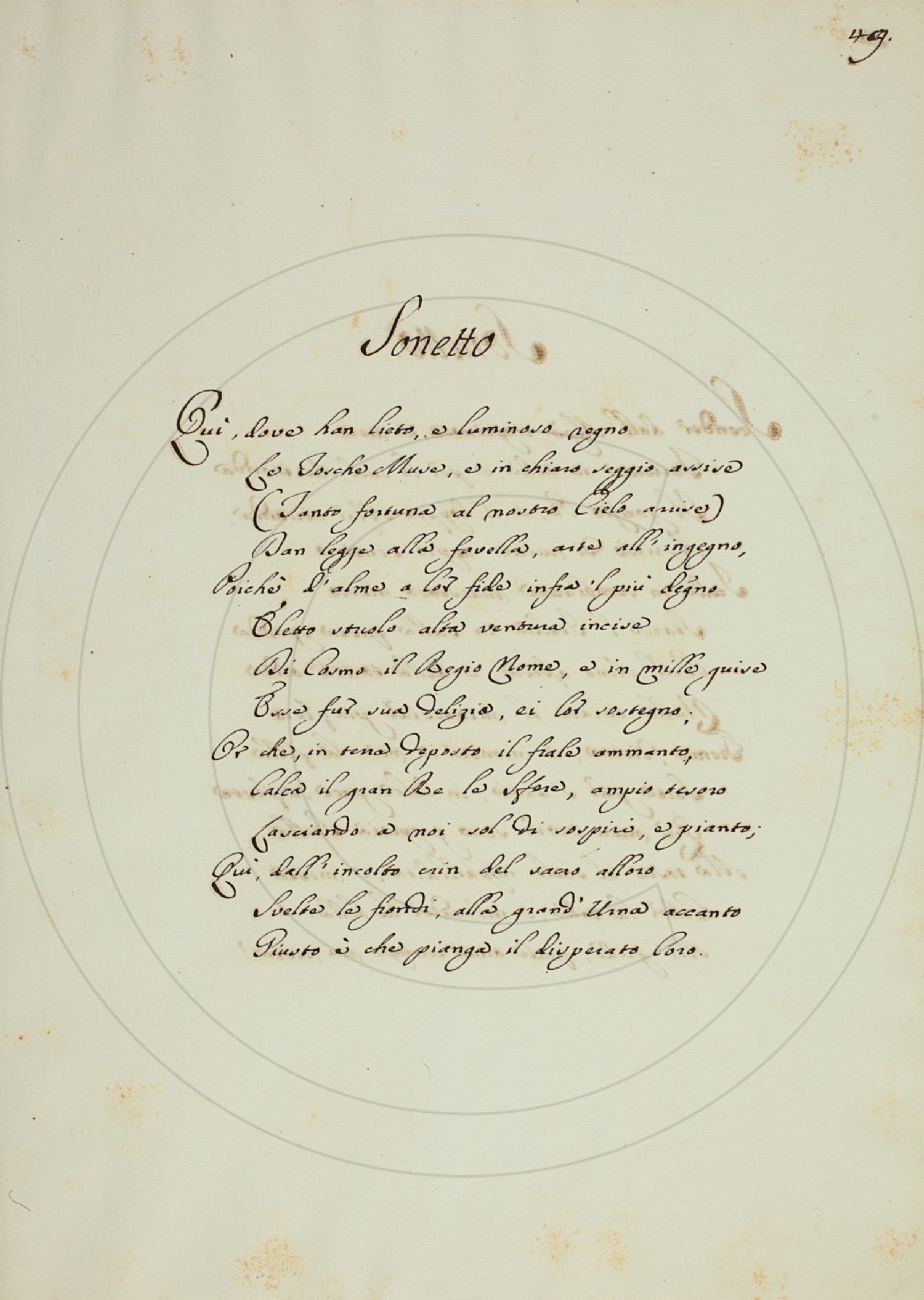 49.
Sonetto
Qui, dove han lieto, e luminoso regno
Le Tosche Muse, e in chiaro seggio assise
(Tanto fortuna al nostro Cielo arrise)
Dan legge alla favella, arte all'ingegno,
Poichè d'alme a lor fide infra 'l più degno
Eletto stuolo alta ventura incise
Di Cosmo il Regio Nome, e in mille guise
Esse fur sua delizia, ei lor sostegno;
Or che, in terra deposto il frale ammanto,
Calca il gran Re le Sfere, ampio tesoro
Lasciando a noi sol di sospiri, e pianto;
Qui, dall'incolto crin del sacro alloro
Svelte le frondi, alla grand'Urna accanto
Giusto è che pianga il disperato Coro.